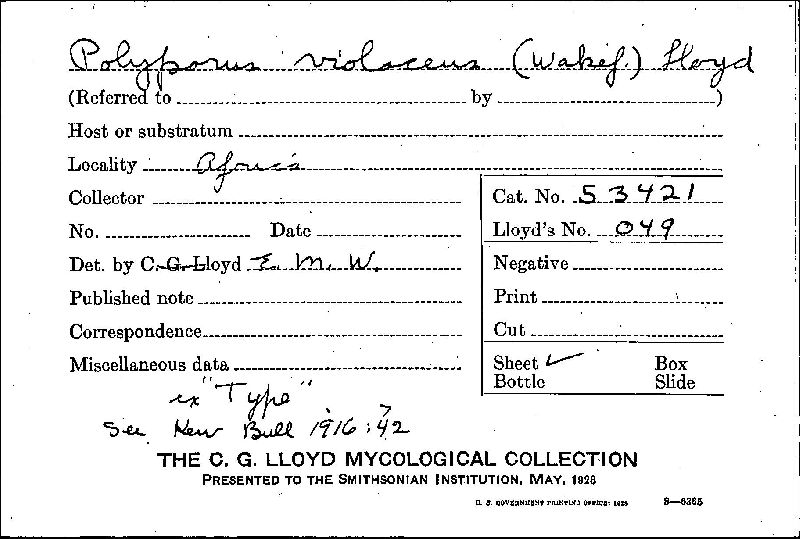 Polyporus violaceus (Wakef.) Lloyd
(Referred to by )
Host or substratum
Locality Africa
Collector
Cat. No. 53421
No. Date
Lloyd's No. 049
Det. by C. G. Lloyd E. M. W.
Negative
Published note
Print
Correspondence
Cut
Miscellaneous data
Sheet ✓ Box
Bottle Slide
ex "Type"
See Kew Bull 1916:42
THE C. G. LLOYD MYCOLOGICAL COLLECTION
PRESENTED TO THE SMITHSONIAN INSTITUTION, MAY, 1928
U. S. GOVERNMENT PRINTING OFFICE: 1928 8—6365